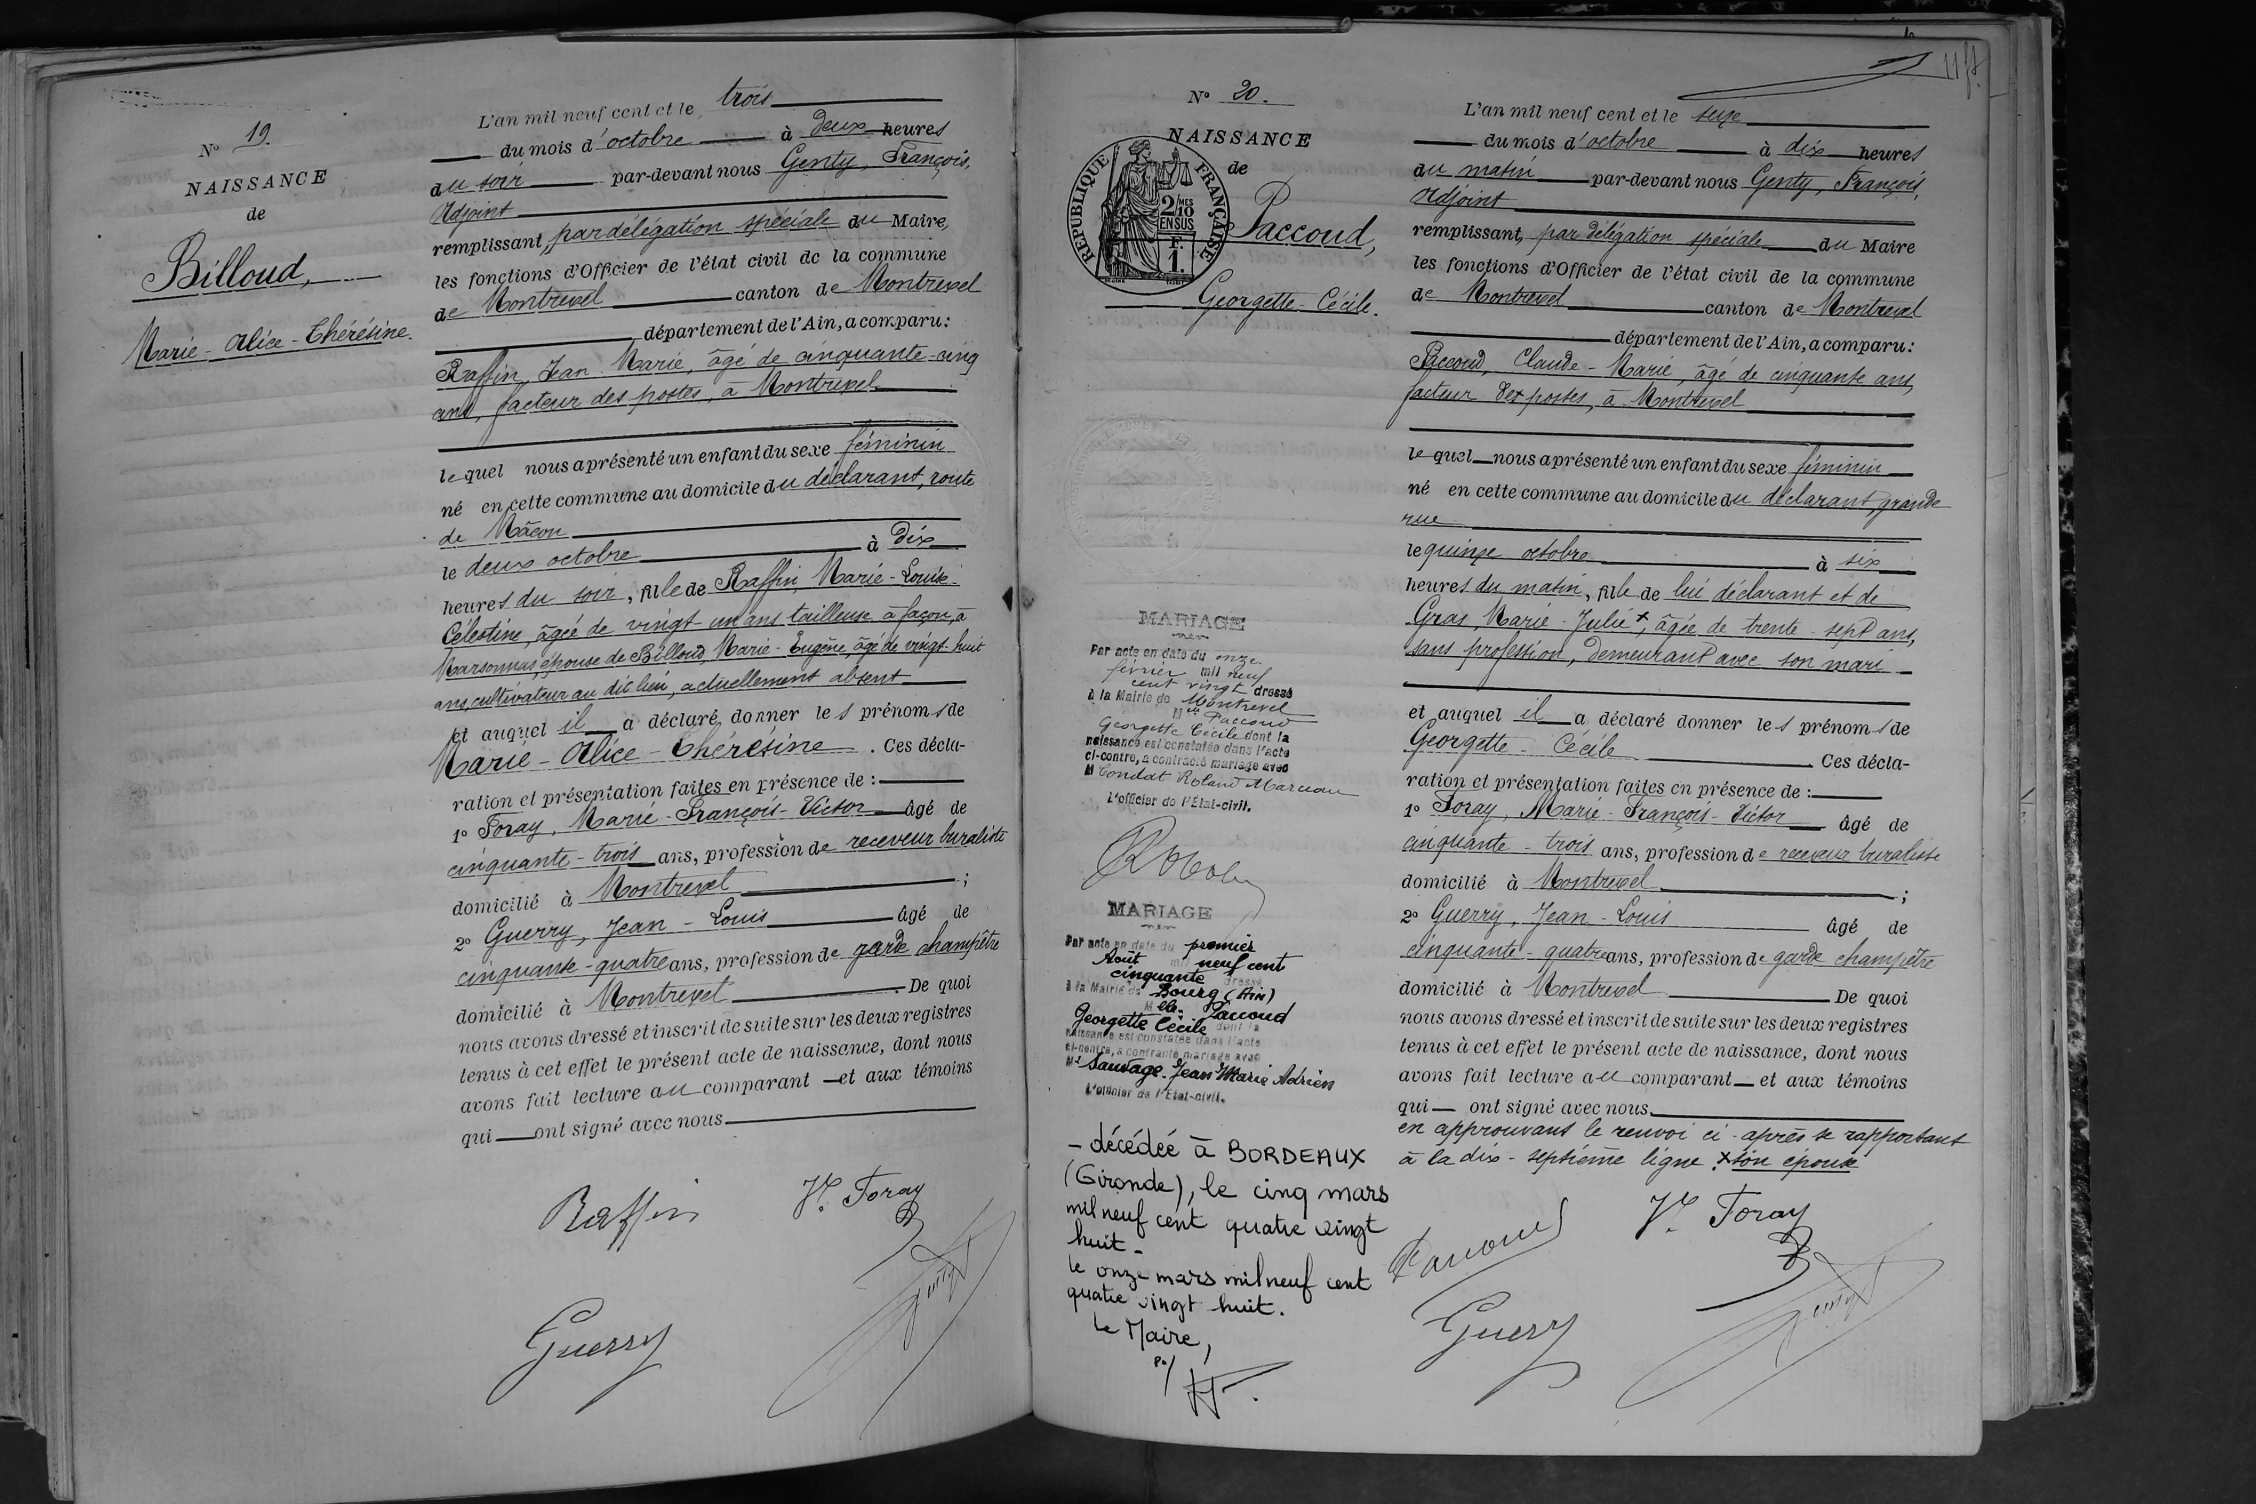 N° 19.
NAISSANCE
de
Billoud,
Marie-Alice-Thérésine.
L'an mil neuf cent et le trois
du mois d'octobre à deux heures
du soir par-devant nous Genty, François,
Adjoint
remplissant, par délégation spéciale du Maire,
les fonctions d'Officier de l'état civil de la commune
de Montrevel canton de Montrevel
département de l'Ain, a comparu:
Raffin, Jean Marie, âgé de cinquante-cinq
ans, facteur des postes, à Montrevel
lequel nous a présenté un enfant du sexe féminin
né en cette commune au domicile du déclarant, route
de Mâcon
le deux octobre à dix
heures du soir, fille de Raffin, Marie-Louise
Célestine, âgée de vingt-un ans tailleuse à façon, à
Marsonnas, épouse de Billoud, Marie-Eugène, âgé de vingt-huit
ans, cultivateur au dit lieu, actuellement absent
et auquel il a déclaré donner les prénoms de
Marie-Alice-Thérésine. Ces décla-
ration et présentation faites en présence de:
1° Foray, Marie-François-Victor âgé de
cinquante-trois ans, profession de receveur buraliste
domicilié à Montrevel;
2° Guerry, Jean-Louis âgé de
cinquante-quatre ans, profession de garde champêtre
domicilié à Montrevel. De quoi
nous avons dressé et inscrit de suite sur les deux registres
tenus à cet effet le présent acte de naissance, dont nous
avons fait lecture au comparant et aux témoins
qui ont signé avec nous
Raffin Vr Foray
Guerry Genty
N° 20.
NAISSANCE
de
REPUBLIQUE FRANÇAISE
2/10 MES
EN SUS
F.
1.
Paccoud,
Georgette-Cécile.
MARIAGE
Par acte en date du onze
février mil neuf
cent vingt dressé
à la Mairie de Montrevel
Mlle Paccoud
Georgette Cécile dont la
naissance est constatée dans l'acte
ci-contre, a contracté mariage avec
M Condat Roland Marceau
L'officier de l'État-civil.
MARIAGE
Par acte en date du premier
Août mil neuf cent
cinquante dressé
à la Mairie de Bourg (Ain)
Melle Paccoud
Georgette Cécile dont la
naissance est constatée dans l'acte
ci-contre, a contracté mariage avec
Mr Sauvage Jean Marie Adrien
L'officier de l'État-civil.
- décédée à BORDEAUX
(Gironde), le cinq mars
mil neuf cent quatre vingt
huit -
le onze mars mil neuf cent
quatre vingt huit.
Le Maire,
L'an mil neuf cent et le seize
du mois d'octobre à dix heures
du matin par-devant nous Genty, François,
Adjoint
remplissant, par délégation spéciale du Maire
les fonctions d'Officier de l'état civil de la commune
de Montrevel canton de Montrevel
département de l'Ain, a comparu:
Paccoud, Claude-Marie, âgé de cinquante ans,
facteur des postes, à Montrevel
lequel nous a présenté un enfant du sexe féminin
né en cette commune au domicile du déclarant, grande
rue
le quinze octobre à six
heures du matin, fille de lui déclarant et de
Gras, Marie-Julie x, âgée de trente-sept ans,
sans profession, demeurant avec son mari
et auquel il a déclaré donner les prénoms de
Georgette-Cécile. Ces décla-
ration et présentation faites en présence de:
1° Foray, Marie-François-Victor âgé de
cinquante-trois ans, profession de receveur buraliste
domicilié à Montrevel;
2° Guerry, Jean-Louis âgé de
cinquante-quatre ans, profession de garde champêtre
domicilié à Montrevel. De quoi
nous avons dressé et inscrit de suite sur les deux registres
tenus à cet effet le présent acte de naissance, dont nous
avons fait lecture au comparant et aux témoins
qui ont signé avec nous
en approuvant le renvoi ci-après se rapportant
à la dix-septième ligne. x son épouse
Paccoud Vr Foray
Guerry Genty